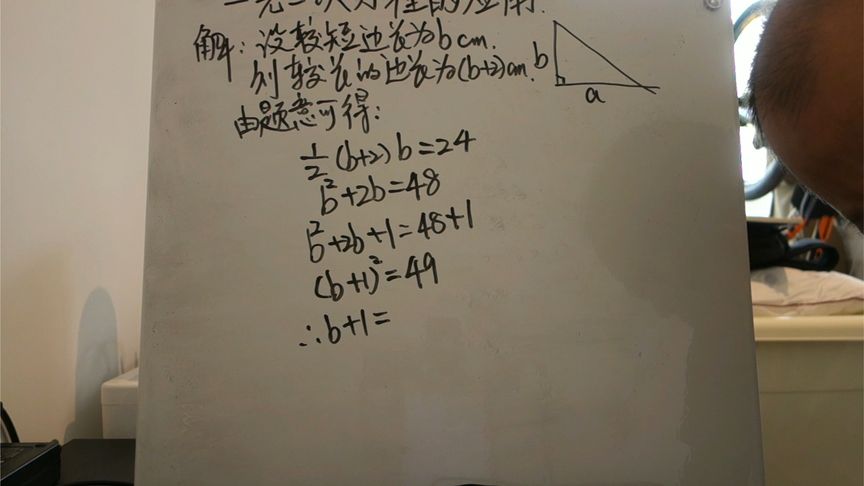 一元二次方程的应用.
解:设较短边长为b cm.
则较长的边长为(b+2)cm.
由题意可得:
b
a
1/2 (b+2) b = 24
b²+2b=48
b²+2b+1=48+1
(b+1)²=49
∴b+1=